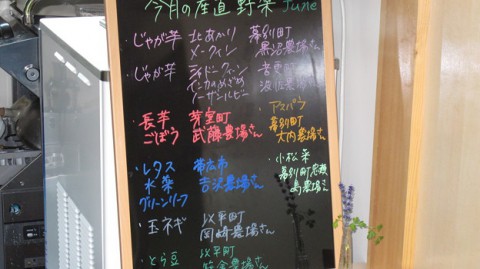 今月の産直野菜 June
・じゃが芋 北あかり 幕別町
メークィン 黒沼農場さん
・じゃが芋 シャドークィン 音更町
インカのめざめ
ノーザンルビー
・長芋 芽室町
ごぼう 武藤農場さん
・アスパラ
幕別町
大内農場さん
・レタス 帯広市
水菜 吉沢農場さん
グリーンリーフ
・小松菜
幕別町忠類
農場さん
・玉ネギ 以平町
岡崎農場さん
・とら豆 以平町
農場さん